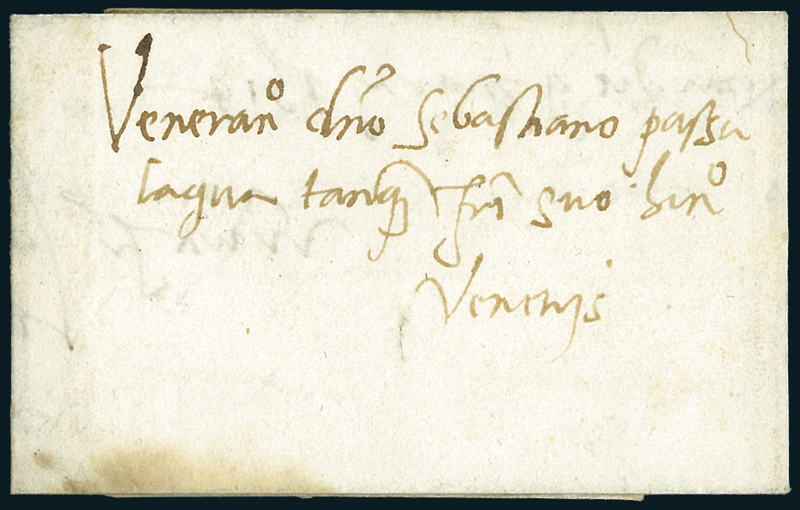 Veneran° dno Sebastiano passa
laqua tanq frı suo hon°
Venetijs